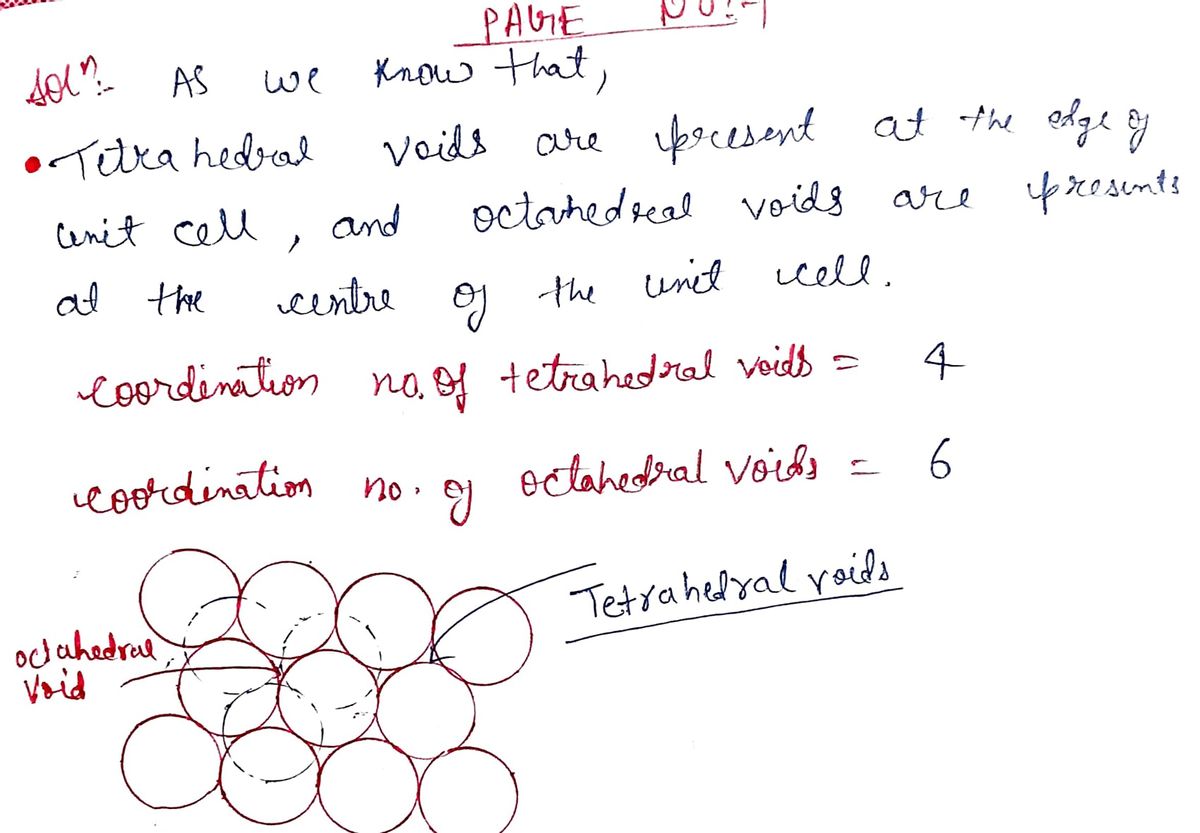 PAGE NO:-1
Solⁿ:- As we know that,
• Tetrahedral voids are present at the edge of
unit cell, and octahedral voids are presents
at the centre of the unit cell.
coordination no. of tetrahedral voids = 4
coordination no. of octahedral voids = 6
Tetrahedral voids
octahedral
void